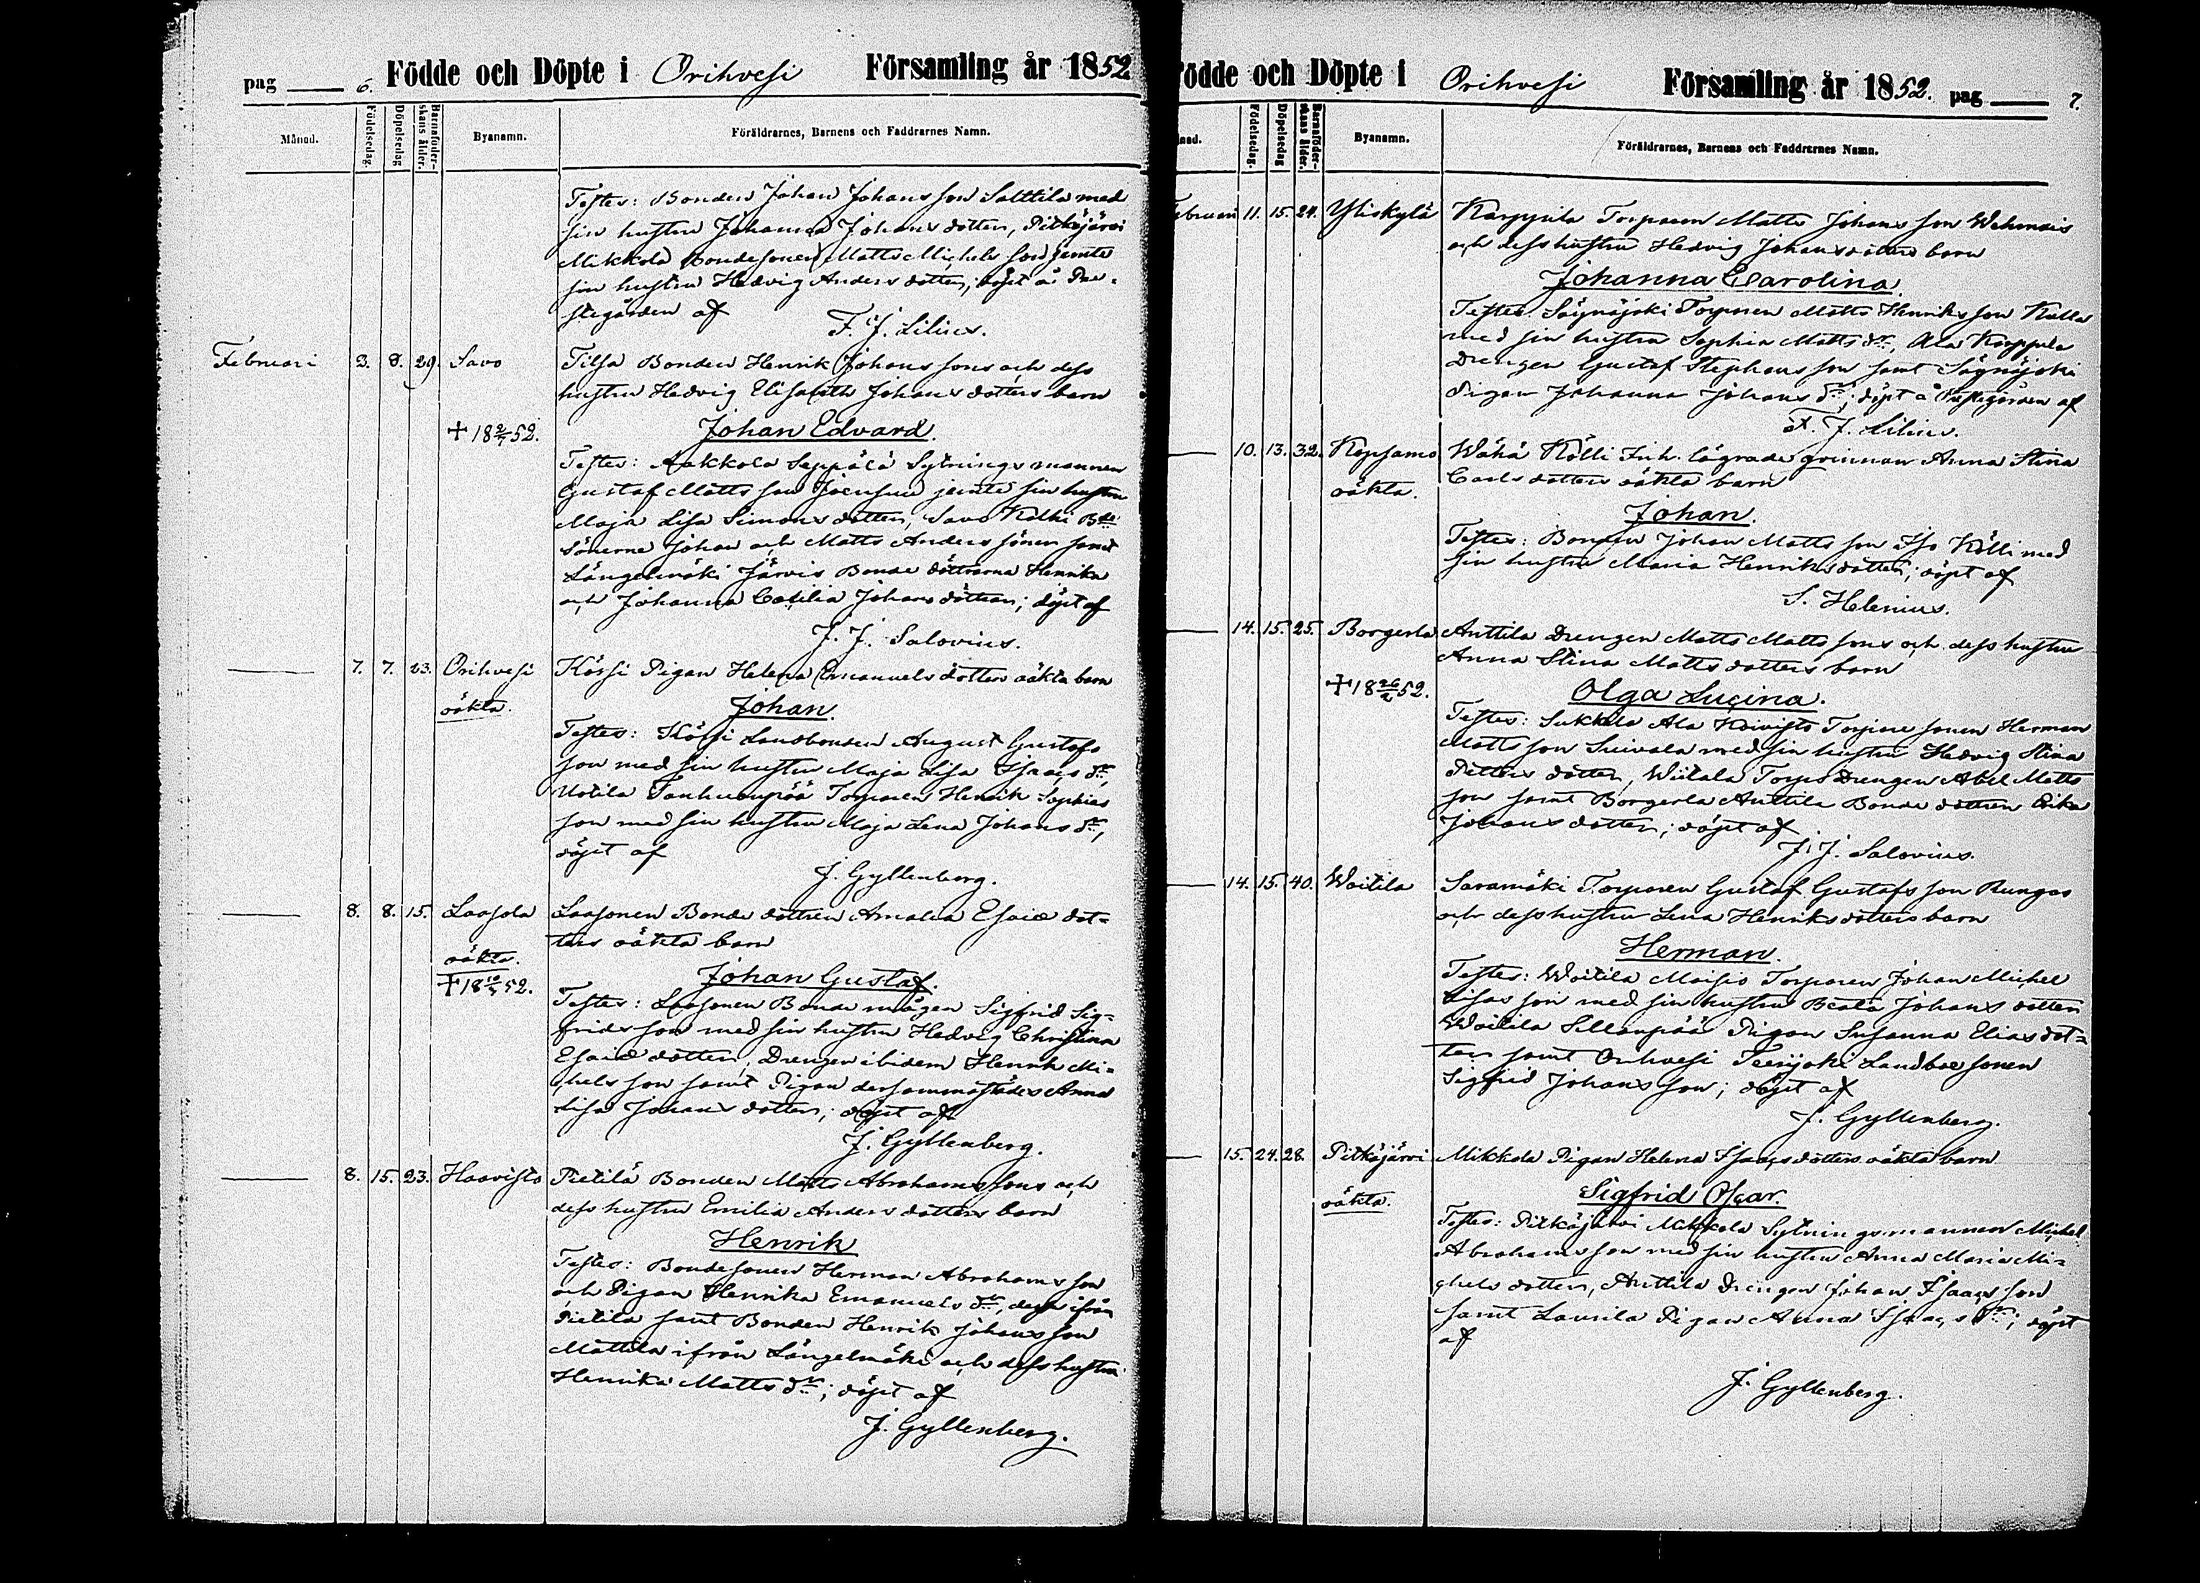 pag 6. Födde och Döpte i Orihvesi Församling år 1852
Månad. Födelsedag. Döpelsedag Barnaföderskans ålder. Byanamn. Föräldrarnes, Barnens och Faddrarnes Namn.
Testes: Bonden Johan Johansson Sattila med
sin hustru Johanna Johansdotter, Pitkäjärvi
Mikkola Bondesonen Matts Michelsson jemte
sin hustru Hedvig Andersdotter; döpt å Pre-
stegården af
F. J. Lilius.
Februari 3. 8. 29. Savo Tilsa Bonden Henrik Johanssons och dess
hustru Hedvig Elisabeth Johansdotters barn
+ 18 52. Johan Edvard.
Testes: Aakkola Seppälä Sytningsmannen
Gustaf Mattsson Joensuu jemte sin hustru
Maja Lisa Simonsdotter, Savo Kölhi Bde
sönerne Johan och Matts Anderssöner samt
Längelmäki Järvis Bonde döttrarna Henrika
och Johanna Cecilia Johansdöttrar; döpt af
J. J. Salovius.
7. 7. 23. Orihvesi Kössi Pigan Helena Emanuelsdotters oäkta barn
oäkta. Johan.
Testes: Kössi Landbonden August Gustafs
son med sin hustru Maja Lisa Isaacs dr,
Uotila Tanhuanpää Torparen Henrik Sophias
son med sin hustru Maja Lena Johans dr,
döpt af
J. Gyllenberg.
8. 8. 15. Laasola Laasonen Bonde dottren Amalia Esaiædot-
ters oäkta barn
oäkta.
+ 18 52. Johan Gustaf.
Testes: Laasonen Bonde mågen Sigfrid Sig-
fridsson med sin hustru Hedvig Christina
Esaiædotter, Drengen ibidem Henrik Mi-
chelsson samt Pigan dersammastädes Anna
Lisa Johansdotter; döpt af
J. Gyllenberg.
8. 15. 23. Haavisto Pietilä Bonden Matts Abrahamssons och
dess hustru Emilia Andersdotters barn
Henrik
Testes: Bondesonen Herman Abrahamsson
och Pigan Henrika Emanuels dr, begge ifrån
Pietilä samt Bonden Henrik Johansson
Mattila ifrån Längelmäki och dess hustru
Henrika Matts dr; döpt af
J. Gyllenberg.
Födde och Döpte i Orihvesi Församling år 1852. pag 7.
Månad. Födelsedag. Döpelsedag Barnaföderskans ålder. Byanamn. Föräldrarnes, Barnens och Faddrarnes Namn.
Februari 11. 15. 24. Yliskylä Karppila Torparen Matts Johansson Wehmais
och dess hustru Hedvig Johansdotters barn
Johanna Carolina.
Testes: Sägnäjoki Torparen Matts Henriksson Kulla
med sin hustru Sophia Matts dr, Ala Karppila
Drengen Gustaf Stephansson samt Sägnäjoki
Pigan Johanna Johans dr; döpt å Prestgården af
F. J. Lilius.
10. 13. 32. Kopsamo Wähä Kölli Frih. lägrade qvinnan Anna Stina
oäkta. Carlsdotters oäkta barn
Johan.
Testes: Bonden Johan Mattsson Iso Kölli med
sin hustru Maria Henriksdotter; döpt af
S. Helenius.
14. 15. 25. Borgerla Anttila Drengen Matts Mattssons och dess hustru
Anna Stina Mattsdotters barn
+ 18 26/2 52. Olga Lucina.
Testes: Sukkila Ala Koivisto Torpare sonen Herman
Mattsson Suivala med sin hustru Hedvig Stina
Pettersdotter, Wiitala Torps Drengen Abel Matts
son samt Borgerla Anttila Bonde dottren Erika
Johansdotter; döpt af
J. J. Salovius.
14. 15. 40. Woitila Saramäki Torparen Gustaf Gustafsson Rungas
och dess hustru Lena Henriksdotters barn
Herman.
Testes: Woitila Maisio Torparen Johan Michel
Lisasson med sin hustru Beata Johansdotter
Woitila Sillanpää Pigan Susanna Eliasdot-
ter samt Orihvesi Teerijoki Landboesonen
Sigfrid Johansson; döpt af
J. Gyllenberg.
15. 24. 28. Pitkäjärvi Mikkola Pigan Helena Isaacsdotters oäkta barn
oäkta. Sigfrid Oscar.
Testes: Pitkäjärvi Mikkola Sytningsmannen Michel
Abrahamsson med sin hustru Anna Maria Mi-
chelsdotter, Anttila Drengen Johan Isaacsson
samt Laurila Pigan Anna Isaacs dr; döpt
af
J. Gyllenberg.